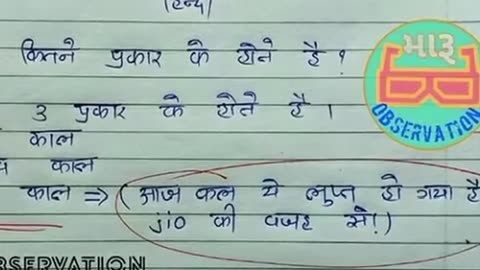 हिन्दी
कितने प्रकार के होते है ?
3 प्रकार के होते है ।
काल
काल
काल ⇒ ( आज कल ये लुप्त हो गया है
jio की वजह से! )
મારૂ
OBSERVATION
OBSERVATION